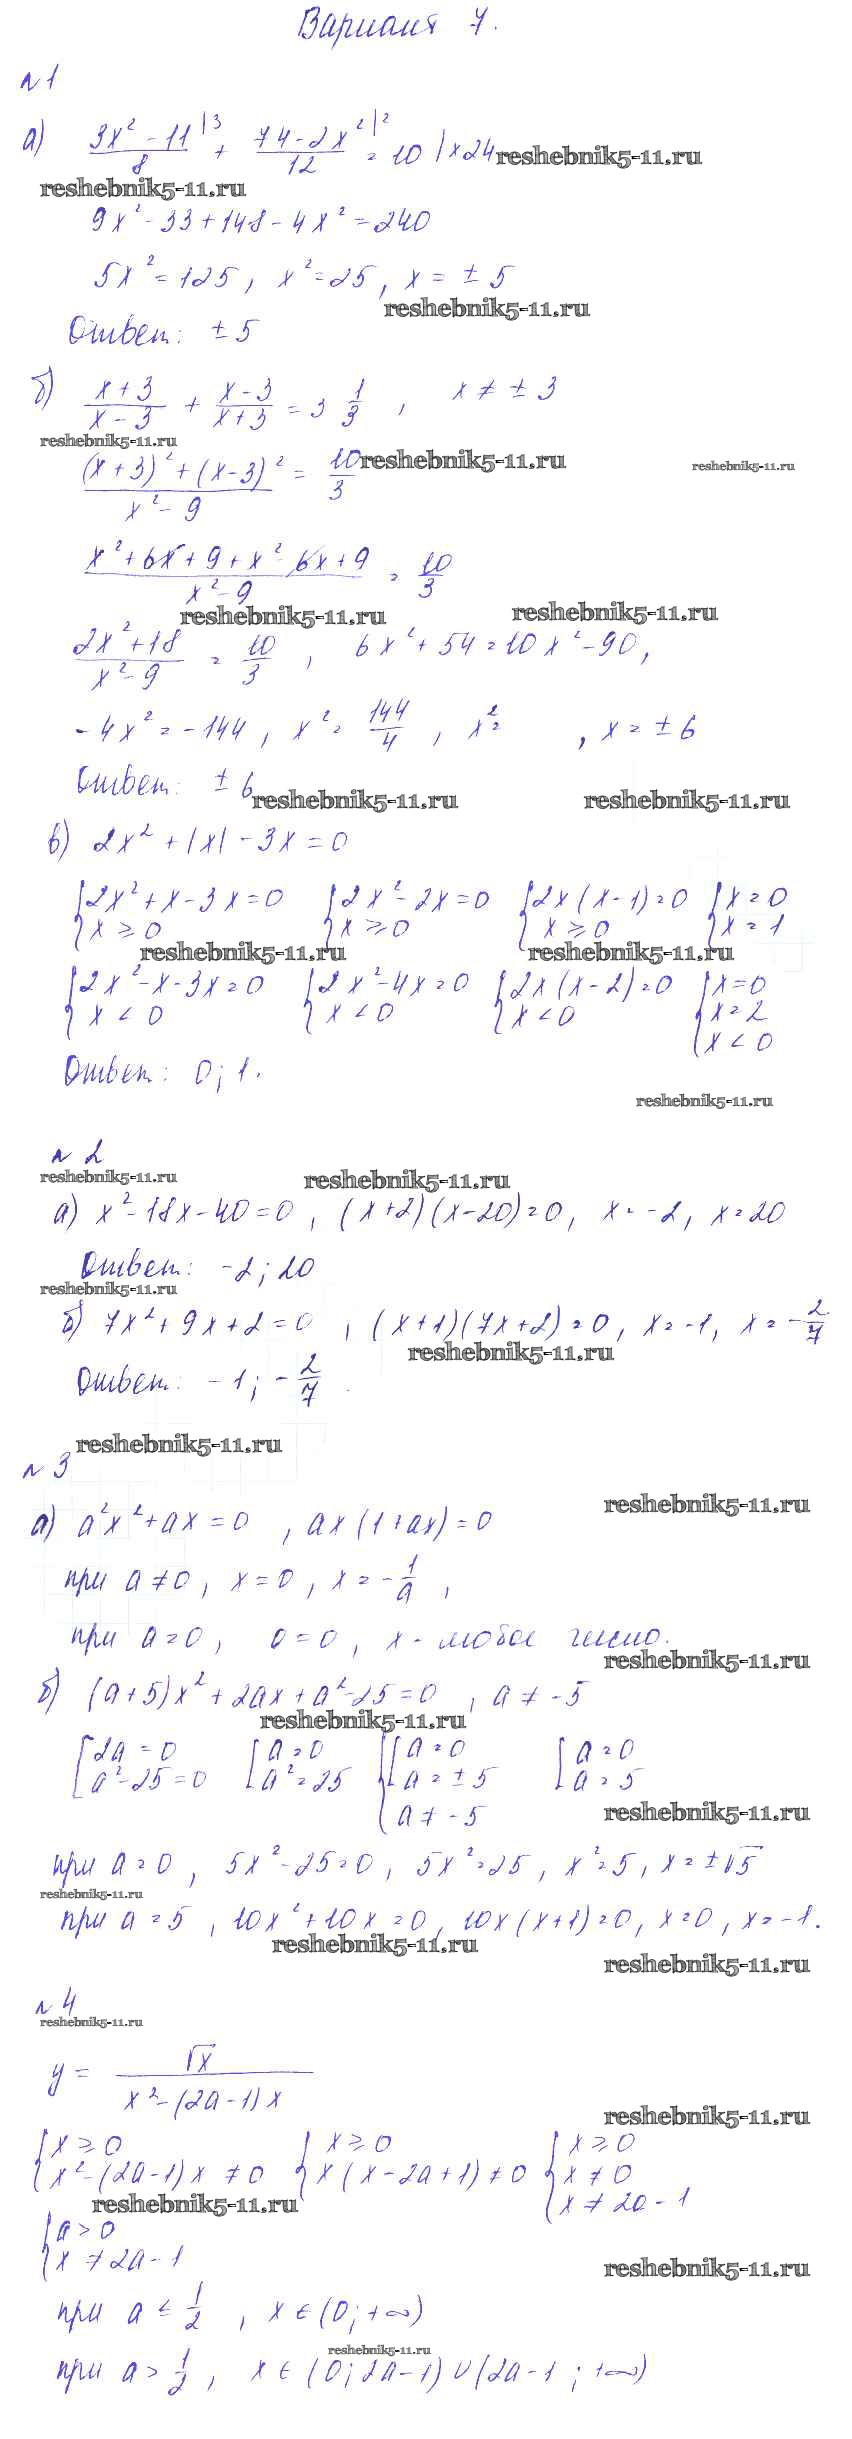 Вариант 7.
№1
а) (3x² - 11)/8 |3 + (74 - 2x²)/12 |2 = 10 | × 24 reshebnik5-11.ru
reshebnik5-11.ru
9x² - 33 + 148 - 4x² = 240
5x² = 125, x² = 25, x = ± 5
reshebnik5-11.ru
Ответ: ± 5
б) (x + 3)/(x - 3) + (x - 3)/(x + 3) = 3 1/3, x ≠ ± 3
reshebnik5-11.ru
((x + 3)² + (x - 3)²)/(x² - 9) = 10/3 reshebnik5-11.ru reshebnik5-11.ru
(x² + 6x + 9 + x² - 6x + 9)/(x² - 9) = 10/3
reshebnik5-11.ru reshebnik5-11.ru
(2x² + 18)/(x² - 9) = 10/3, 6x² + 54 = 10x² - 90,
- 4x² = -144, x² = 144/4, x² = , x = ± 6
Ответ: ± 6
reshebnik5-11.ru reshebnik5-11.ru
в) 2x² + |x| - 3x = 0
{2x² + x - 3x = 0 {2x² - 2x = 0 {2x(x - 1) = 0 {x = 0
x ≥ 0 x ≥ 0 x ≥ 0 x = 1
reshebnik5-11.ru reshebnik5-11.ru
{2x² - x - 3x = 0 {2x² - 4x = 0 {2x(x - 2) = 0 {x = 0
x < 0 x < 0 x < 0 x = 2
x < 0
Ответ: 0; 1.
reshebnik5-11.ru
№ 2
reshebnik5-11.ru reshebnik5-11.ru
а) x² - 18x - 40 = 0, (x + 2)(x - 20) = 0, x = -2, x = 20
Ответ: -2; 20
reshebnik5-11.ru
б) 7x² + 9x + 2 = 0, (x + 1)(7x + 2) = 0, x = -1, x = -2/7
reshebnik5-11.ru
Ответ: -1; -2/7.
reshebnik5-11.ru
№ 3
reshebnik5-11.ru
а) a²x² + ax = 0, ax(1 + ax) = 0
при a ≠ 0, x = 0, x = -1/a,
при a = 0, 0 = 0, x - любое число.
reshebnik5-11.ru
б) (a + 5)x² + 2ax + a² - 25 = 0, a ≠ -5
reshebnik5-11.ru
[2a = 0 [a = 0 {[a = 0 [a = 0
a² - 25 = 0 a² = 25 a = ± 5 a = 5
a ≠ -5
reshebnik5-11.ru
при a = 0, 5x² - 25 = 0, 5x² = 25, x² = 5, x = ±√5
reshebnik5-11.ru
при a = 5, 10x² + 10x = 0, 10x(x + 1) = 0, x = 0, x = -1.
reshebnik5-11.ru
reshebnik5-11.ru
№ 4
reshebnik5-11.ru
y = √x/(x² - (2a - 1)x)
reshebnik5-11.ru
{x ≥ 0 {x ≥ 0 {x ≥ 0
x² - (2a - 1)x ≠ 0 x(x - 2a + 1) ≠ 0 x ≠ 0
x ≠ 2a - 1
reshebnik5-11.ru
{a > 0
x ≠ 2a - 1
reshebnik5-11.ru
при a ≤ 1/2, x ∈ (0; +∞)
reshebnik5-11.ru
при a > 1/2, x ∈ (0; 2a - 1) ∪ (2a - 1; +∞)